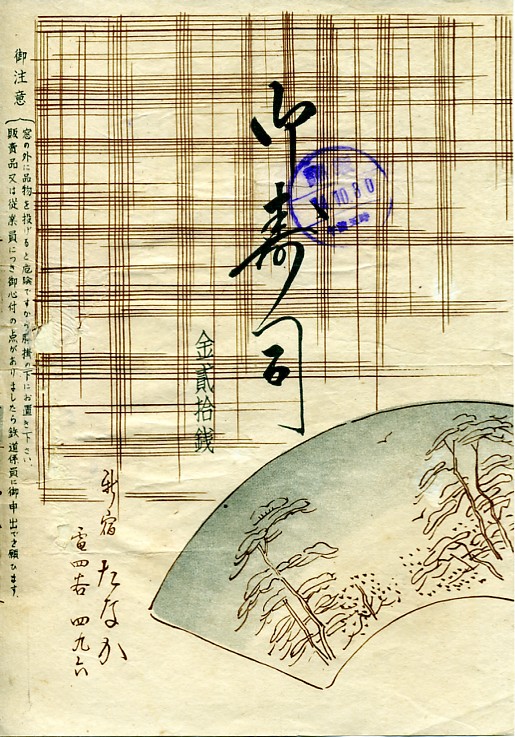 御寿司
金貳拾銭
新宿 たなか
電四谷 四九六
御注意
窓の外に品物を投げると危険ですから腰掛の下にお置き下さい
販賣品又は従業員につき御心付の点がありましたら鉄道係員に御申出を願ひます
10.30